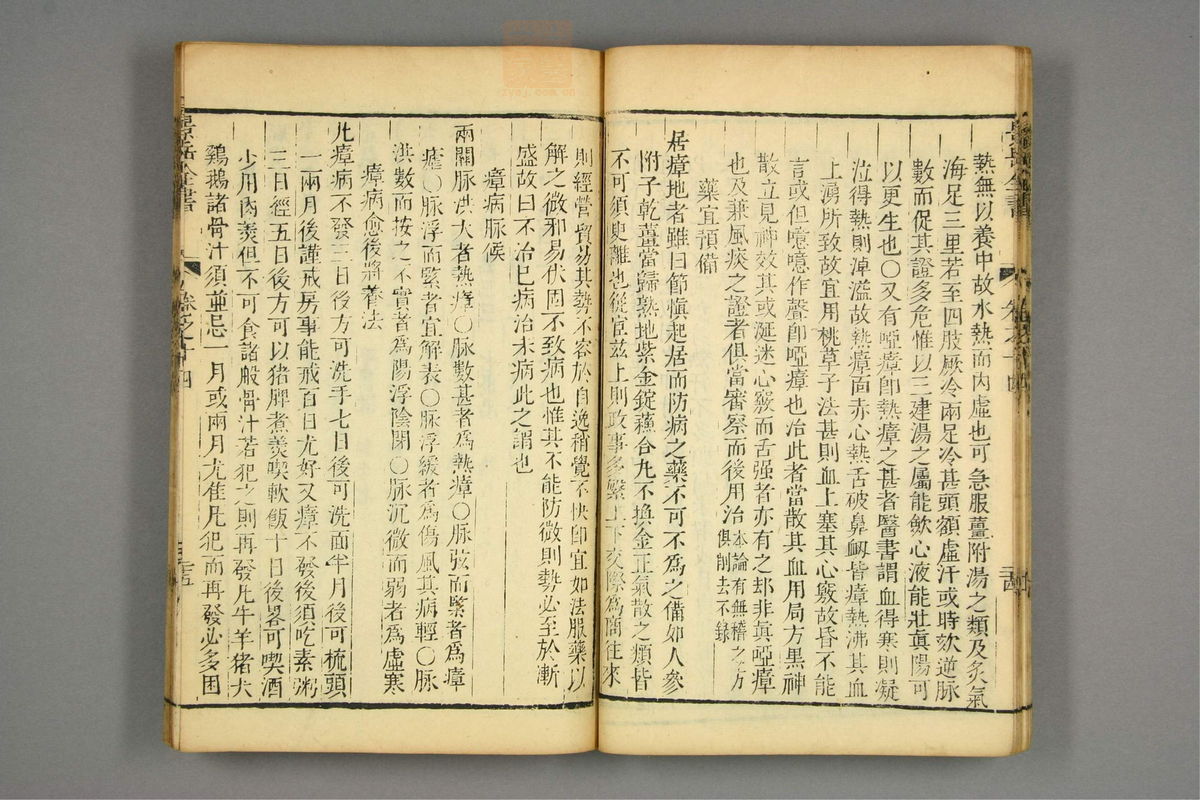 熱無以養中故水熱而内虛也可急服薑附湯之類及炙氣
海足三里若至四肢厥冷兩足冷甚頭額虛汗或時欬逆脉
數而促其證多危惟以三建湯之屬能歛心液能壯真陽可
以更生也〇又有啞瘴即熱瘴之甚者醫書謂血得寒則凝
泣得熱則淖溢故熱瘴面赤心熱舌破鼻衂皆瘴熱沸其血
上湧所致故宜用桃草子法甚則血上塞其心竅故昏不能
言或但噫噫作聲即啞瘴也治此者當散其血用局方黑神
散立見神效其或涎迷心竅而舌强者亦有之却非真啞瘴
也及兼風痰之證者俱當審察而後用治本論有無稽之方俱削去不錄
藥宜預備
居瘴地者雖曰節慎起居而防病之藥不可不為之備如人參
附子乾薑當歸熟地紫金錠蘓合丸不換金正氣散之類皆
不可須臾離也從宦兹土則政事多繁上下交際為商往來
則經營貿易其勢不容於自逸稍覺不快即宜如法服藥以
解之微邪易伏固不致病也惟其不能防微則勢必至於漸
盛故曰不治已病治未病此之謂也
瘴病脉候
兩關脉洪大者熱瘴〇脉數甚者為熱瘴〇脉弦而緊者為瘴
瘧〇脉浮而緊者宜解表〇脉浮緩者為傷風其病輕〇脉
洪數而按之不實者為陽浮陰閉〇脉沉微而弱者為虛寒
瘴病愈後將養法
凡瘴病不發三日後方可洗手七日後可洗面半月後可梳頭
一兩月後謹戒房事能戒百日尤好又瘴不發後須吃素粥
三日經五日後方可以猪脾煮羮喫軟飯十日後畧可喫酒
少用肉羮但不可食諸般骨汁若犯之則再發凡牛羊猪犬
鷄鵝諸骨汁須並忌一月或兩月尤佳凡犯而再發必多困
景岳全書
卷之十四